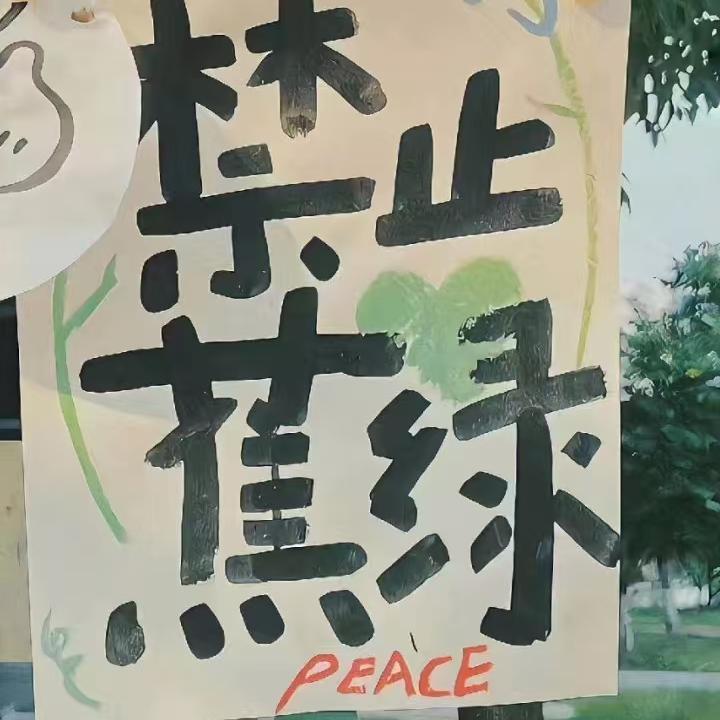 禁止
蕉绿
PEACE